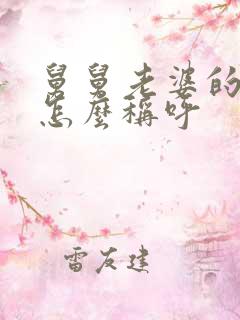 舅舅老婆的
怎麼稱呼
雷友建